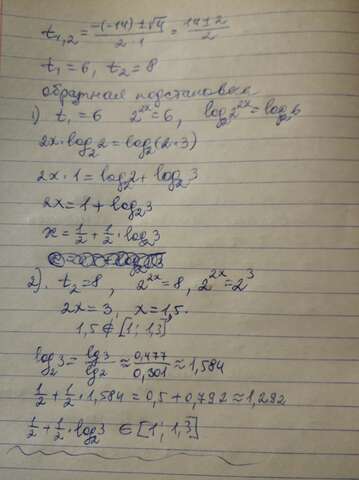 t₁,₂ = (-(-14) ± √4) / (2·1) = (14 ± 2) / 2
t₁ = 6, t₂ = 8
обратная подстановка
1) t₁ = 6 2²ˣ = 6, log₂2²ˣ = log₂6
2x·log₂2 = log₂(2·3)
2x·1 = log₂2 + log₂3
2x = 1 + log₂3
x = 1/2 + 1/2·log₂3
2). t₂ = 8, 2²ˣ = 8, 2²ˣ = 2³
2x = 3, x = 1,5.
1,5 ∉ [1; 1,3]
log₂3 = lg3/lg2 ≈ 0,477/0,301 ≈ 1,584
1/2 + 1/2·1,584 = 0,5 + 0,792 ≈ 1,292
1/2 + 1/2·log₂3 ∈ [1; 1,3]